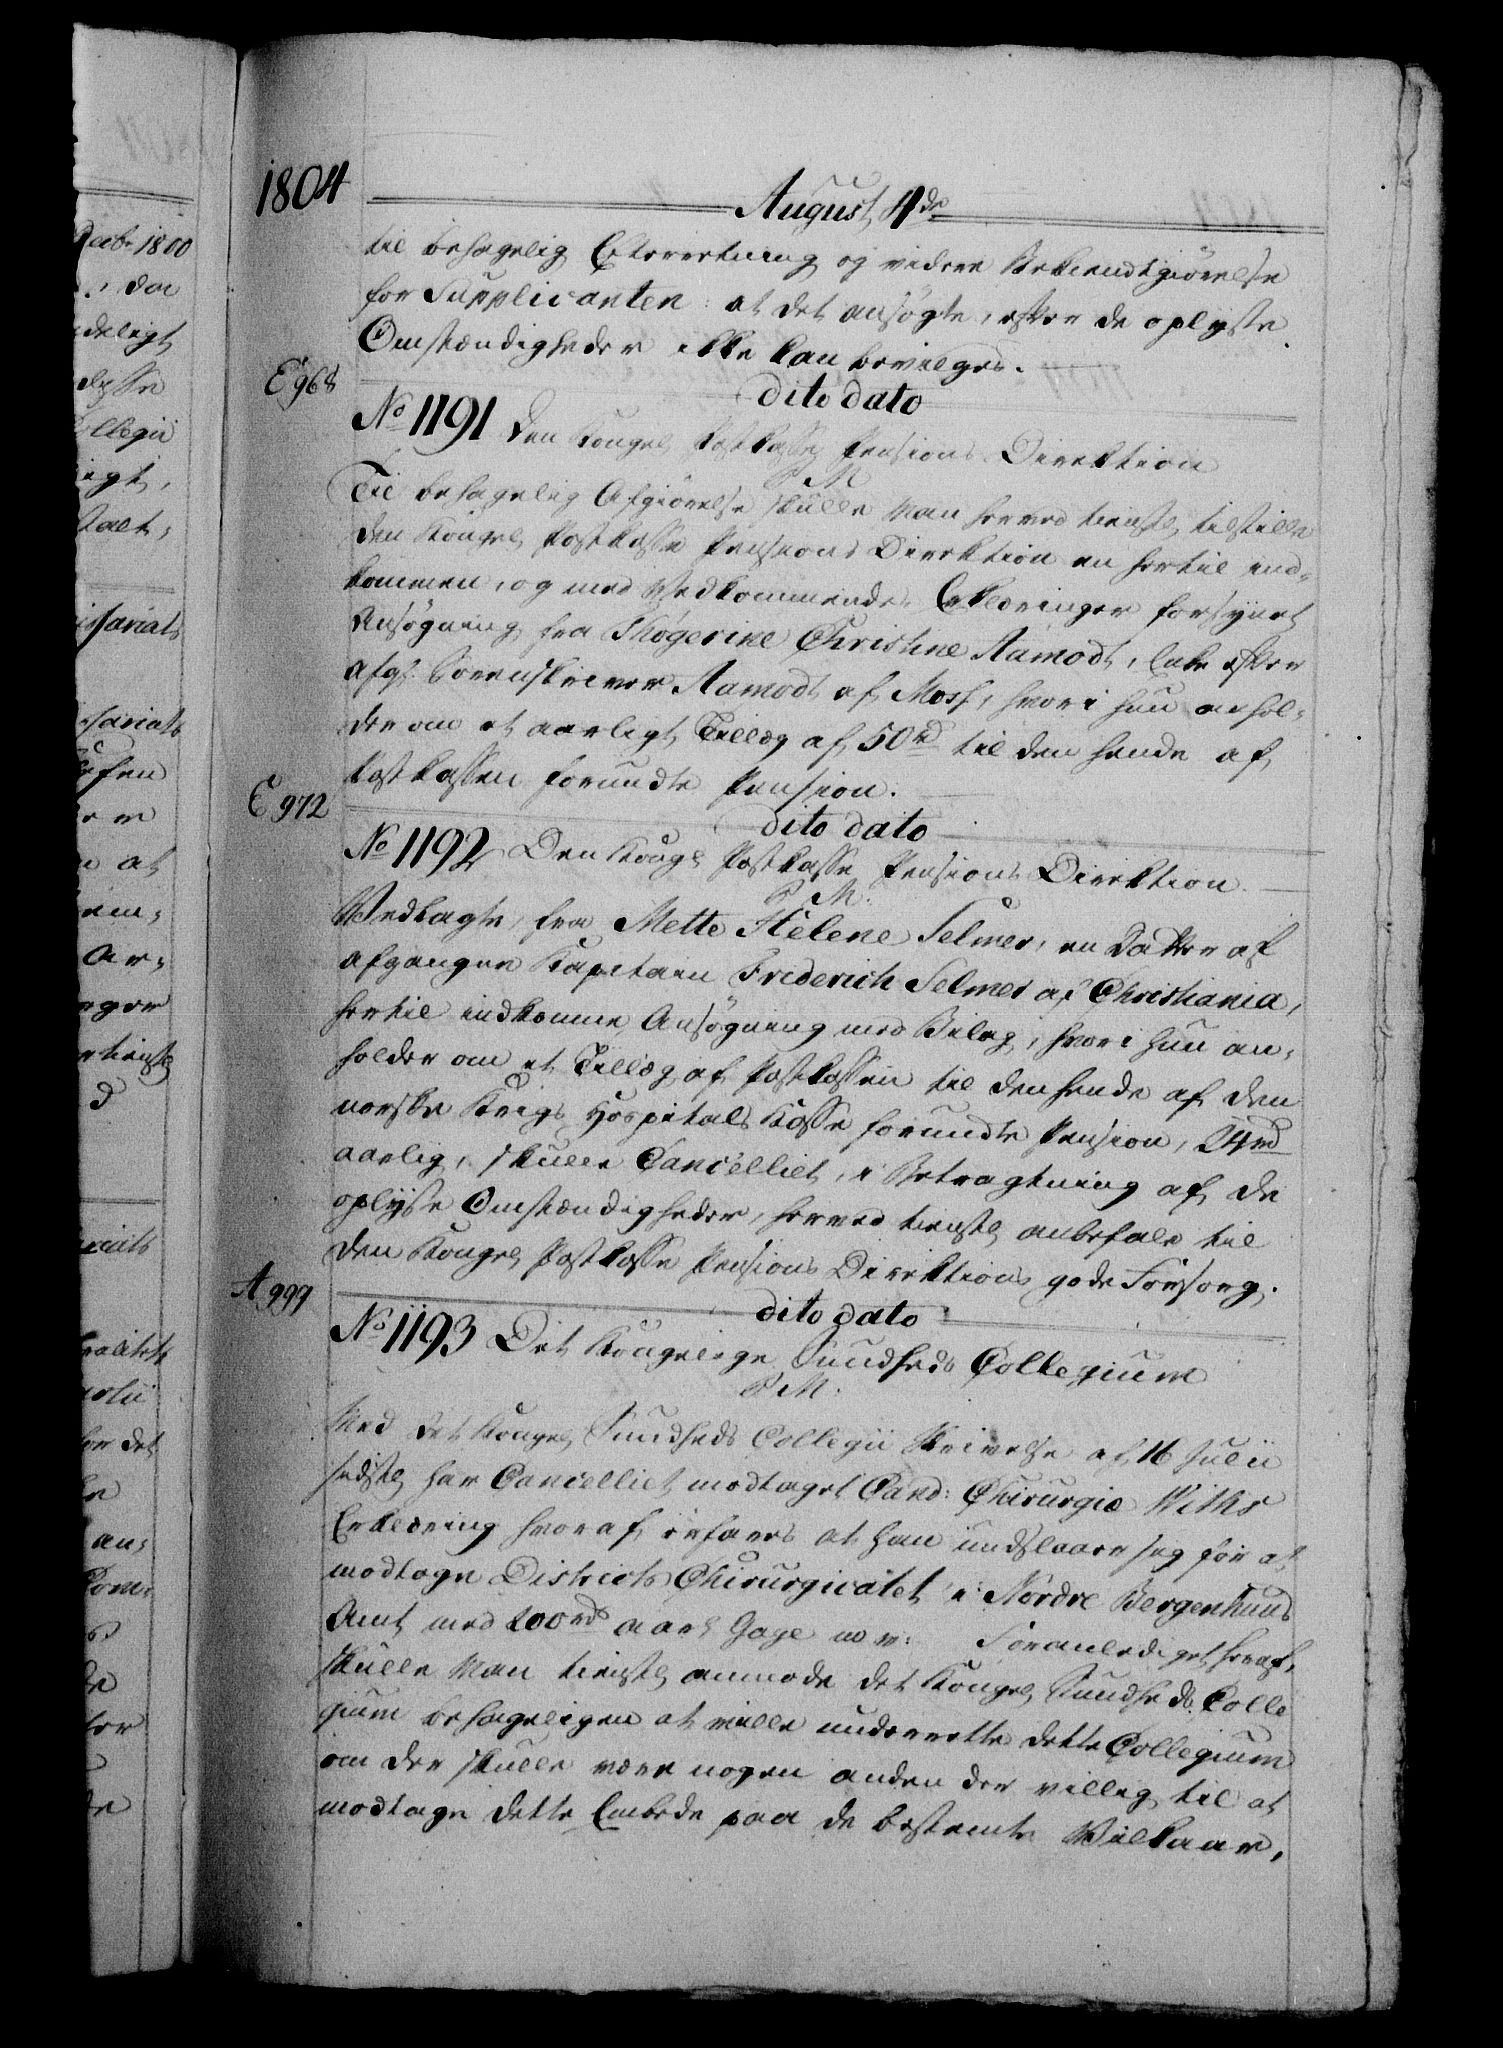 1804
August 4de
til behagelig Efterretning og videre Bekiendtgiörelse
for Supplicanten: at det ansögte, efter de oplyste
Omstændigheder ikke kan bevilges.
E 968
dito dato
No 1191 Den Kongel Postkasse Pensions Direktion
P M
Til behagelig Afgiörelse skulle man herved tienstl tilstille
den Kongel Postkasse Pensions Direktion en hertil ind-
kommen, og med Vedkommendes Erklæringer forsynet
Ansögning fra Thögerine Christine Aamodt, Enke efter
afg: Sorenskriver Aamodt af Moss, hvori hun anhol-
der om et aarligt Tillæg af 50 rd til den hende af
Postkassen forundte Pension.
E 972
dito dato
No 1192 Den Kongl Postkasse Pensions Direktion.
P M.
Vedlagte, fra Mette Helene Selmer, en Datter af
afgangen Kapitain Friderich Selmer af Christiania,
hertil indkomne Ansögning med Bilag, hvori hun an-
holder om et Tillæg af Postkassen til den hende af den
norske Krigs Hospitals Kasse forundte Pension, 24 rd
aarlig, skulle Cancelliet, i Betragtning af de
oplyste Omstændigheder, herved tienstl anbefale til
den Kongel Postkasse Pensions Direktions gode Forsorg.
A 999
dito dato
No 1193 Det Kongelige Sundheds Collegium
P M.
Med det Kongel Sundheds Collegii Skrivelse af 16 Julii
sidstl har Cancelliet modtaget Cand: Chirurgiæ Withs
Erklæring hvoraf erfares at han undslaaer sig for at
modtage Districts Chirurgicatet i Nordre Bergenhuus
Amt med 200 rds aarl Gage m v: Foranlediget heraf,
skulle man tienstl anmode det Kongel Sundheds Colle
gium behageligen at ville underrette dette Collegium
om der skulle være nogen anden der villig til at
modtage dette Embede paa de bestemte Vilkaar,